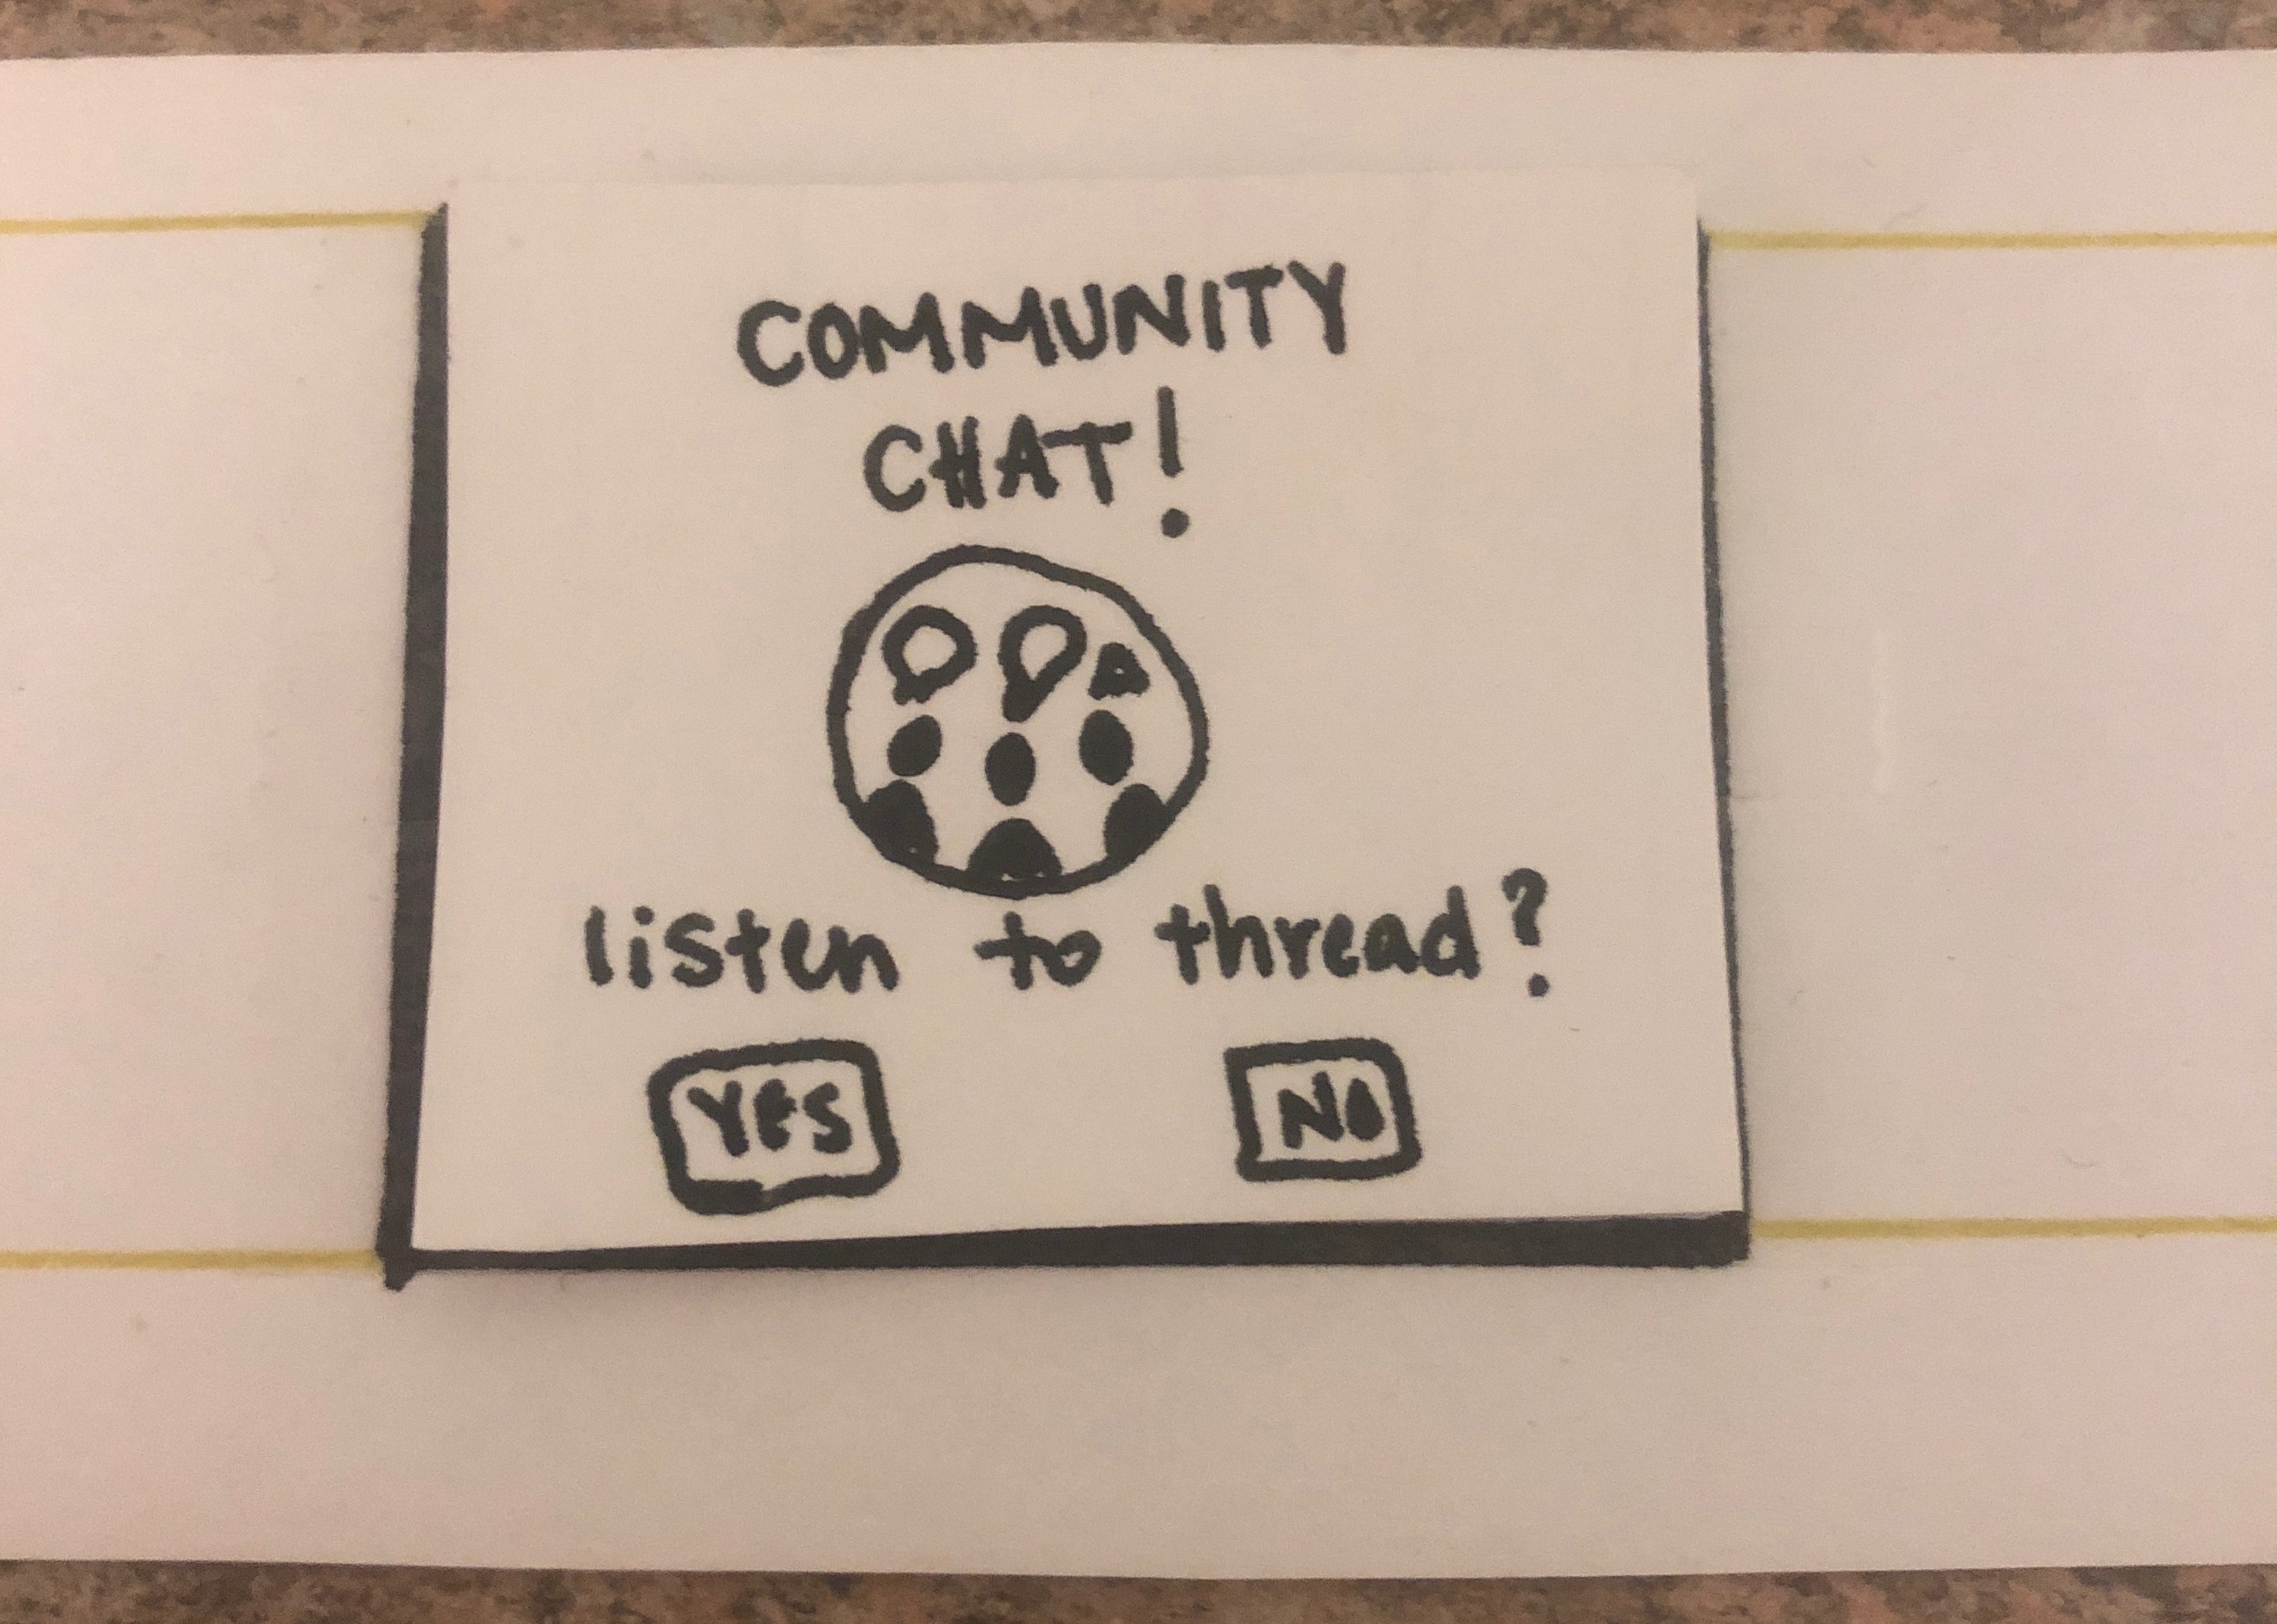 COMMUNITY
CHAT!
listen to thread?
YES NO